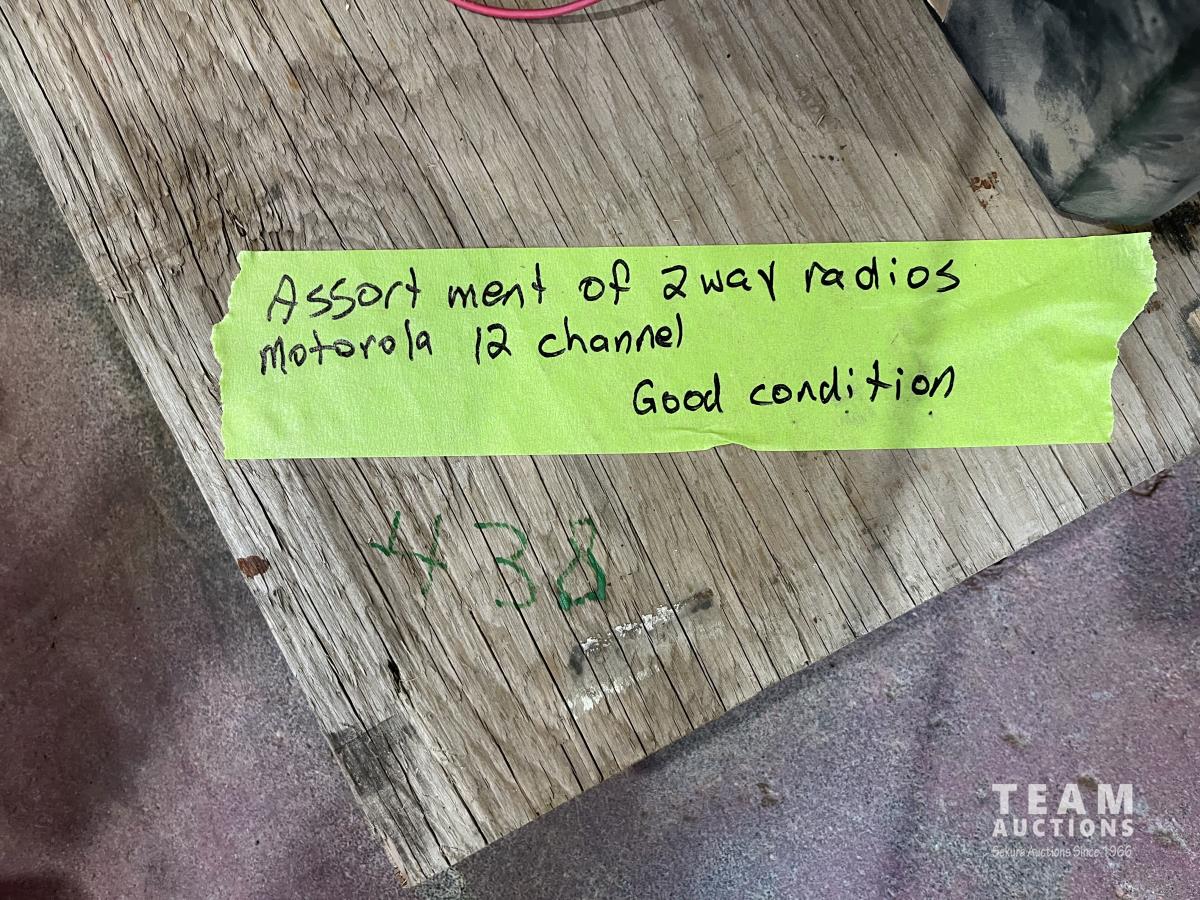 Assortment of 2 way radios
Motorola 12 channel
Good condition
438
TEAM
AUCTIONS
Sekura Auctions Since 1966